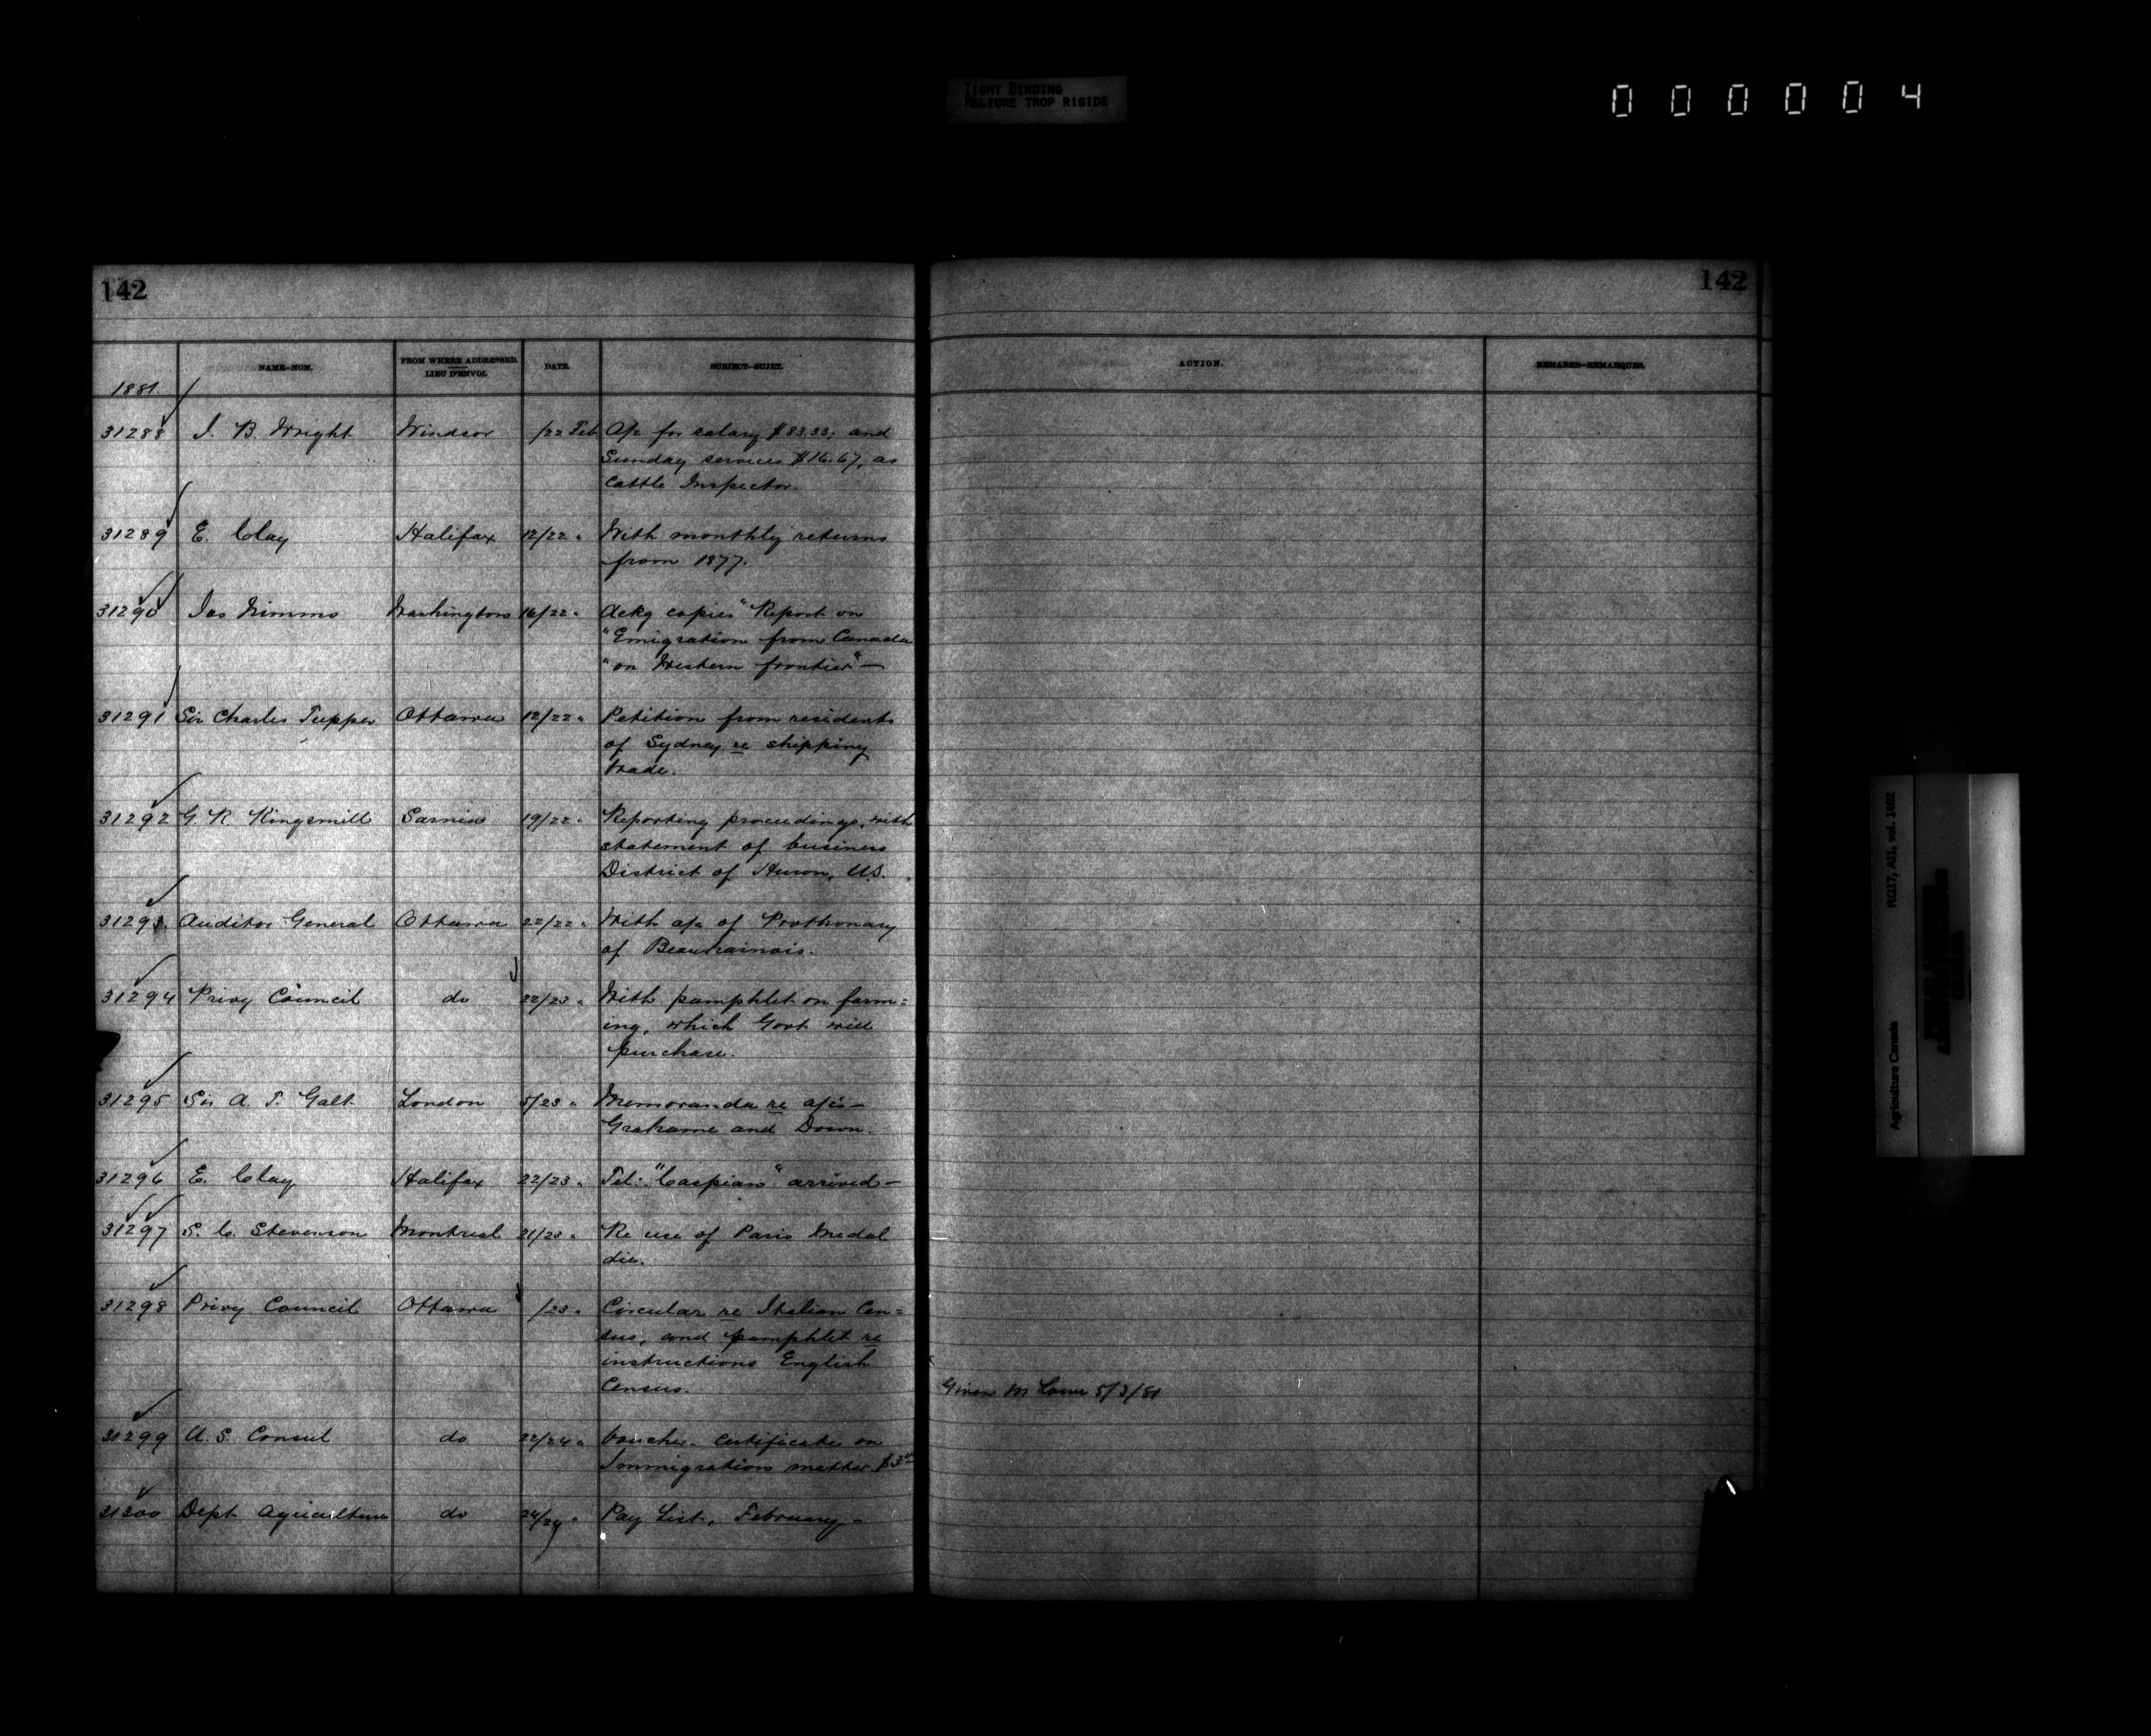 TIGHT BINDING
RELIURE TROP RIGIDE
0 0 0 0 0 4
142
142
NAME—NOM.
FROM WHERE ADDRESSED.
LIEU D'ENVOI.
DATE.
SUBJECT—SUJET.
ACTION.
REMARKS—REMARQUES.
1881.
31288 J. B. Wright Windsor /22 Feb a/c for salary $83.33; and
Sunday services $16.67, as
Cattle Inspector.
31289 E. Clay Halifax 12/22 " With monthly returns
from 1877.
31290 Jas Nimmo Washington 16/22 " Ackg copies "Report on
"Emigration from Canada
"on Western frontier" —
31291 Sir Charles Tupper Ottawa 12/22 " Petition from residents
of Sydney re shipping
trade.
31292 G. R. Kingsmill Sarnia 19/22 " Reporting proceedings, with
statement of business
District of Huron, U.S.
31293 Auditor General Ottawa 22/22 " With a/c of Prothonary
of Beauharnois.
31294 Privy Council do 22/23 " With pamphlet on farm=
ing, which Govt will
purchase.
31295 Sir A. T. Galt London 5/23 " Memoranda re a/cs —
Grahame and Down.
31296 E. Clay Halifax 22/23 " Tel: "Caspian" arrived —
31297 S. C. Stevenson Montreal 21/23 " Re use of Paris Medal
die.
31298 Privy Council Ottawa /23 " Circular re Italian Cen=
sus, and pamphlet re
instructions English
Census.
Given Mr 5/3/81
31299 U. S. Consul do 22/24 " Voucher - Certificate on
Immigration matter. $3
31300 Dept Agriculture do 24/24 " Pay List, February —
Agriculture Canada RG17, AII, vol. 1402